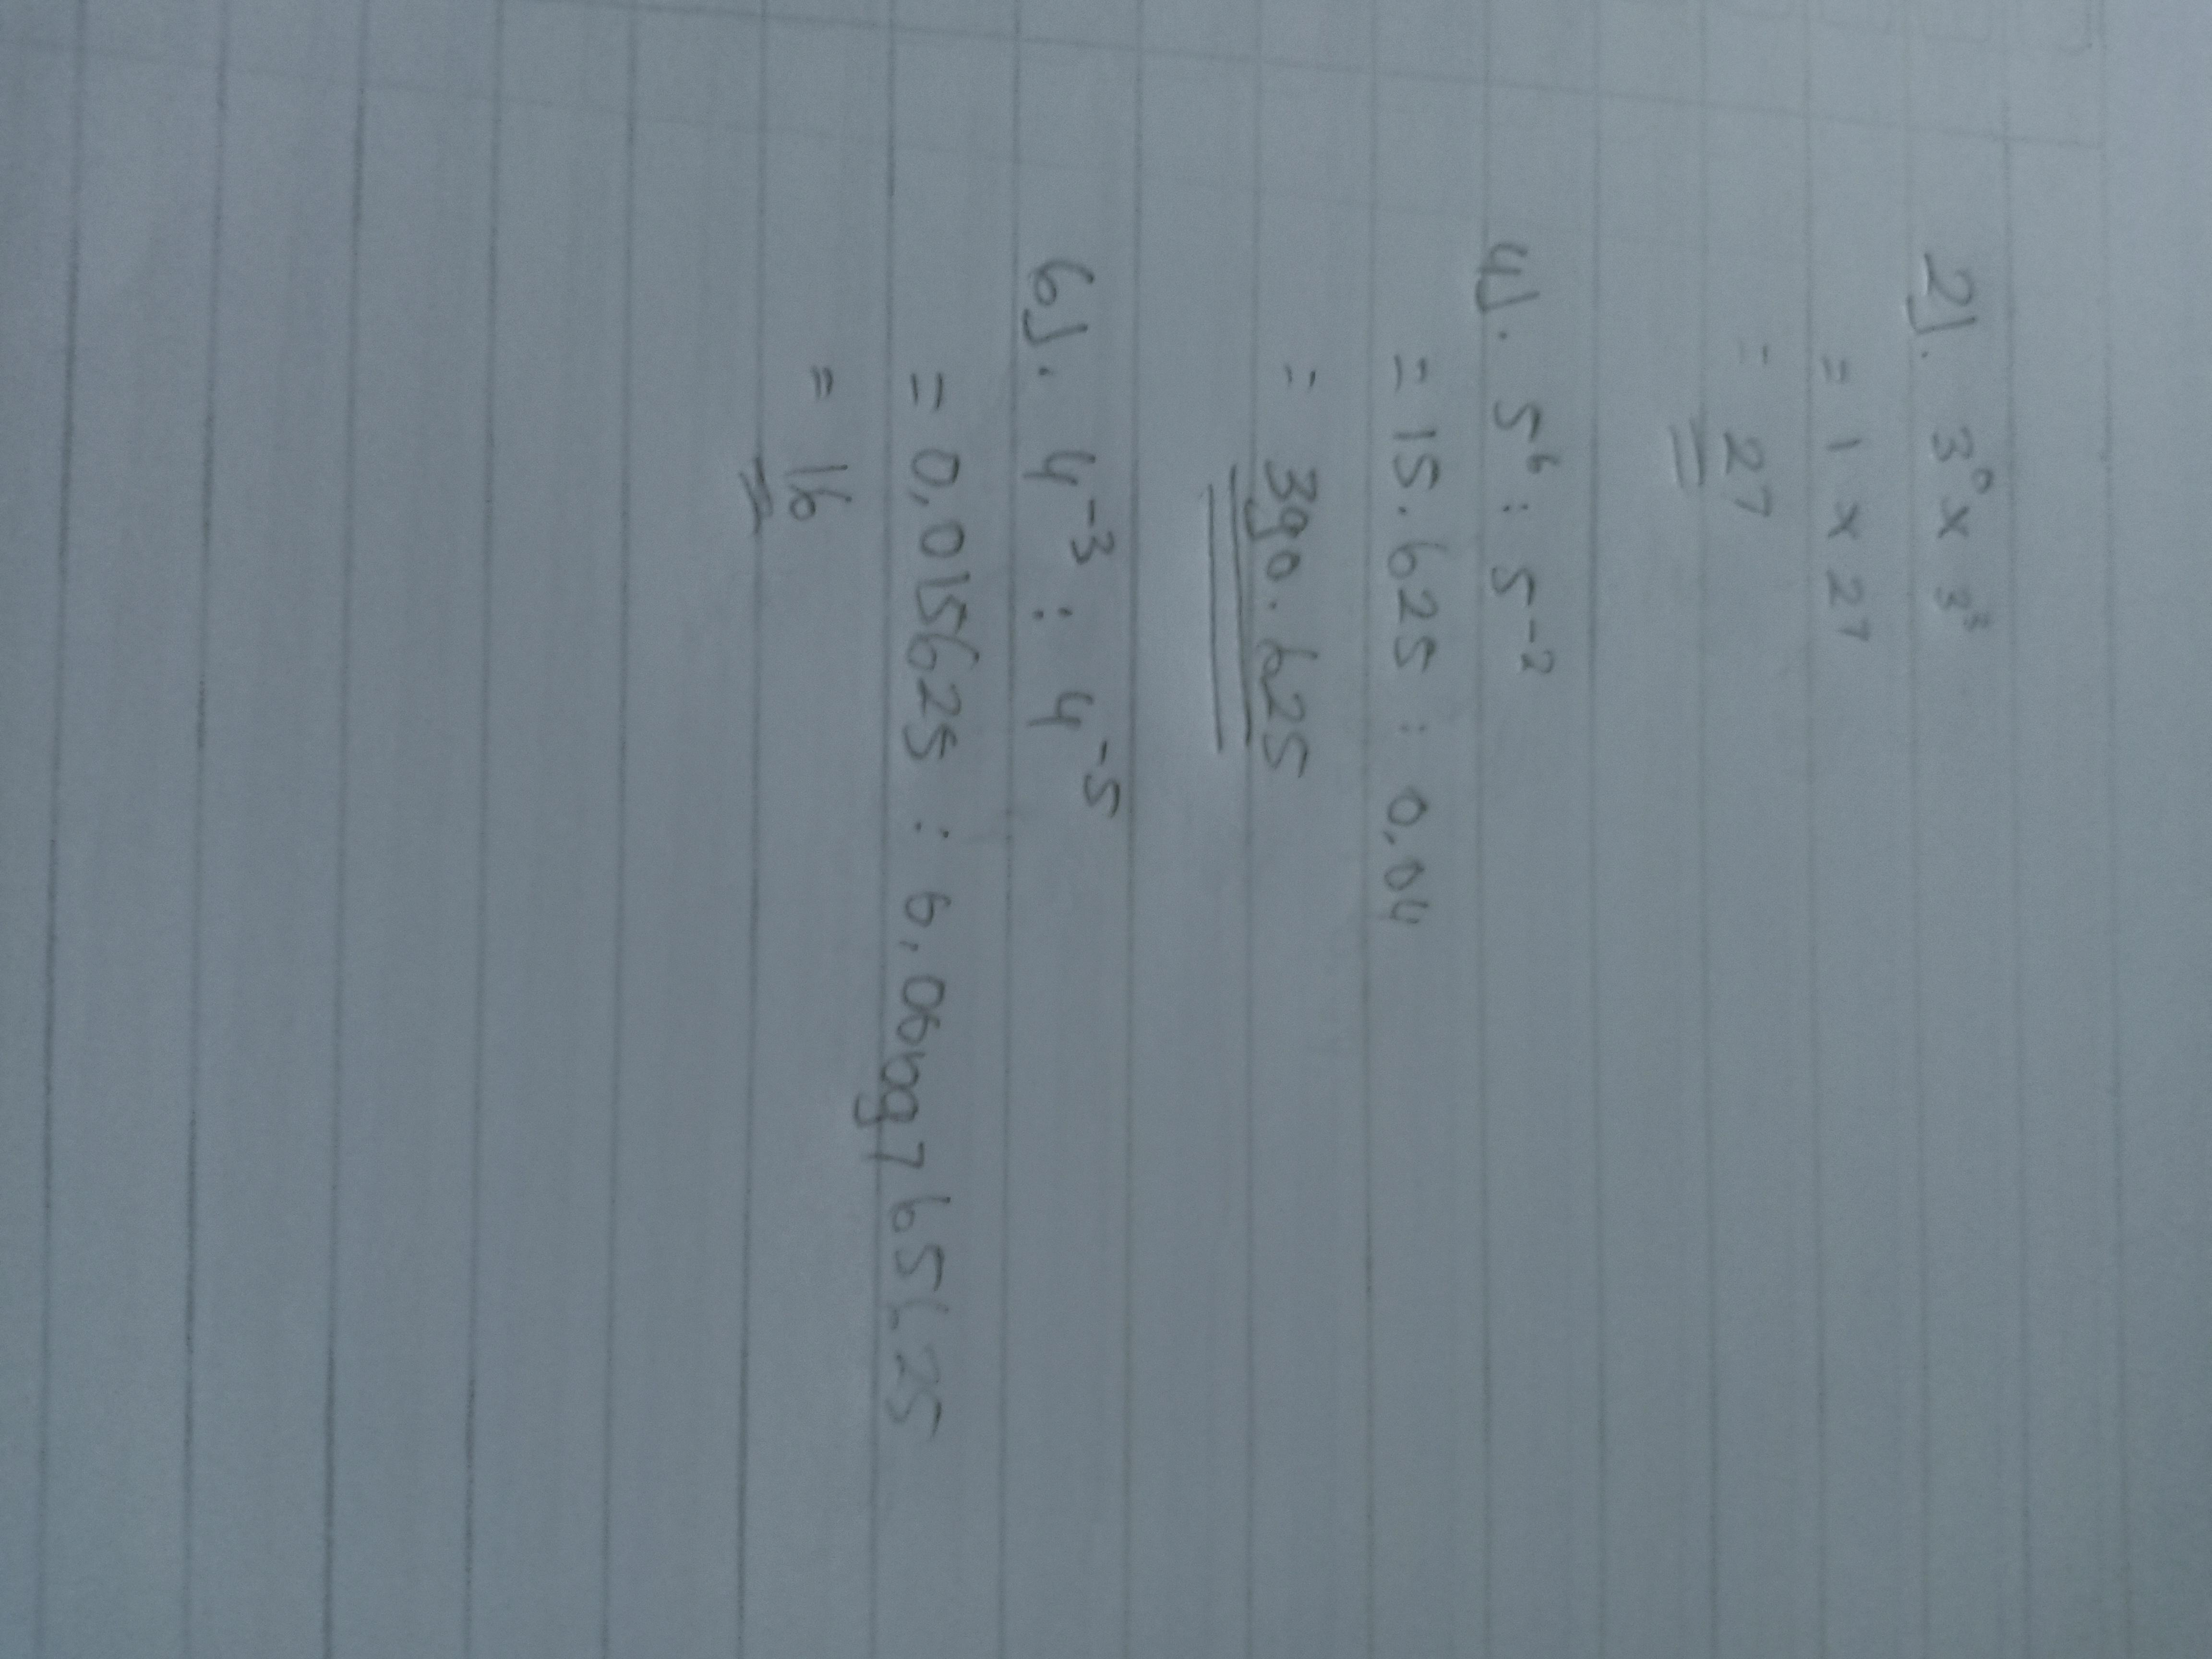 2). 3⁰ x 3³
= 1 x 27
= 27
4). 5⁶ : 5⁻²
= 15.625 : 0,04
= 390.625
6). 4⁻³ : 4⁻⁵
= 0,015625 : 0,0009765625
= 16